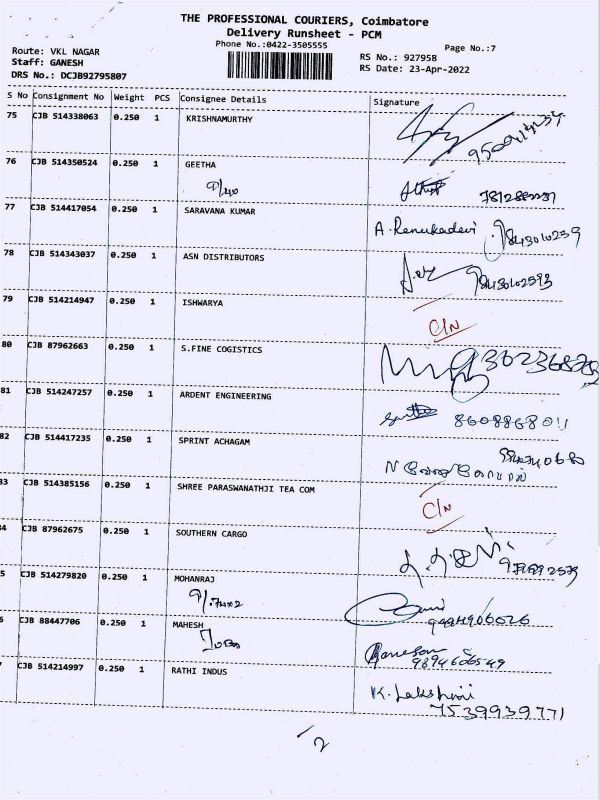 THE PROFESSIONAL COURIERS, Coimbatore
Delivery Runsheet - PCM
Phone No.:0422-3505555
Page No.:7
Route: VKL NAGAR
RS No.: 927958
Staff: GANESH
RS Date: 23-Apr-2022
DRS No.: DCJB92795807
S No Consignment No Weight PCS Consignee Details Signature
75 CJB 514338063 0.250 1 KRISHNAMURTHY
76 CJB 514350524 0.250 1 GEETHA
77 CJB 514417054 0.250 1 SARAVANA KUMAR A. Renukadevi
78 CJB 514343037 0.250 1 ASN DISTRIBUTORS
9843602593
79 CJB 514214947 0.250 1 ISHWARYA
C/N
80 CJB 87962663 0.250 1 S.FINE COGISTICS
81 CJB 514247257 0.250 1 ARDENT ENGINEERING
8608868011
82 CJB 514417235 0.250 1 SPRINT ACHAGAM
83 CJB 514385156 0.250 1 SHREE PARASWANATHJI TEA COM
C/N
84 CJB 87962675 0.250 1 SOUTHERN CARGO
5 CJB 514279820 0.250 1 MOHANRAJ
6 CJB 88447706 0.250 1 MAHESH
Ganesan
9894606549
CJB 514214997 0.250 1 RATHI INDUS
K. Lakshmi
7539939771
2